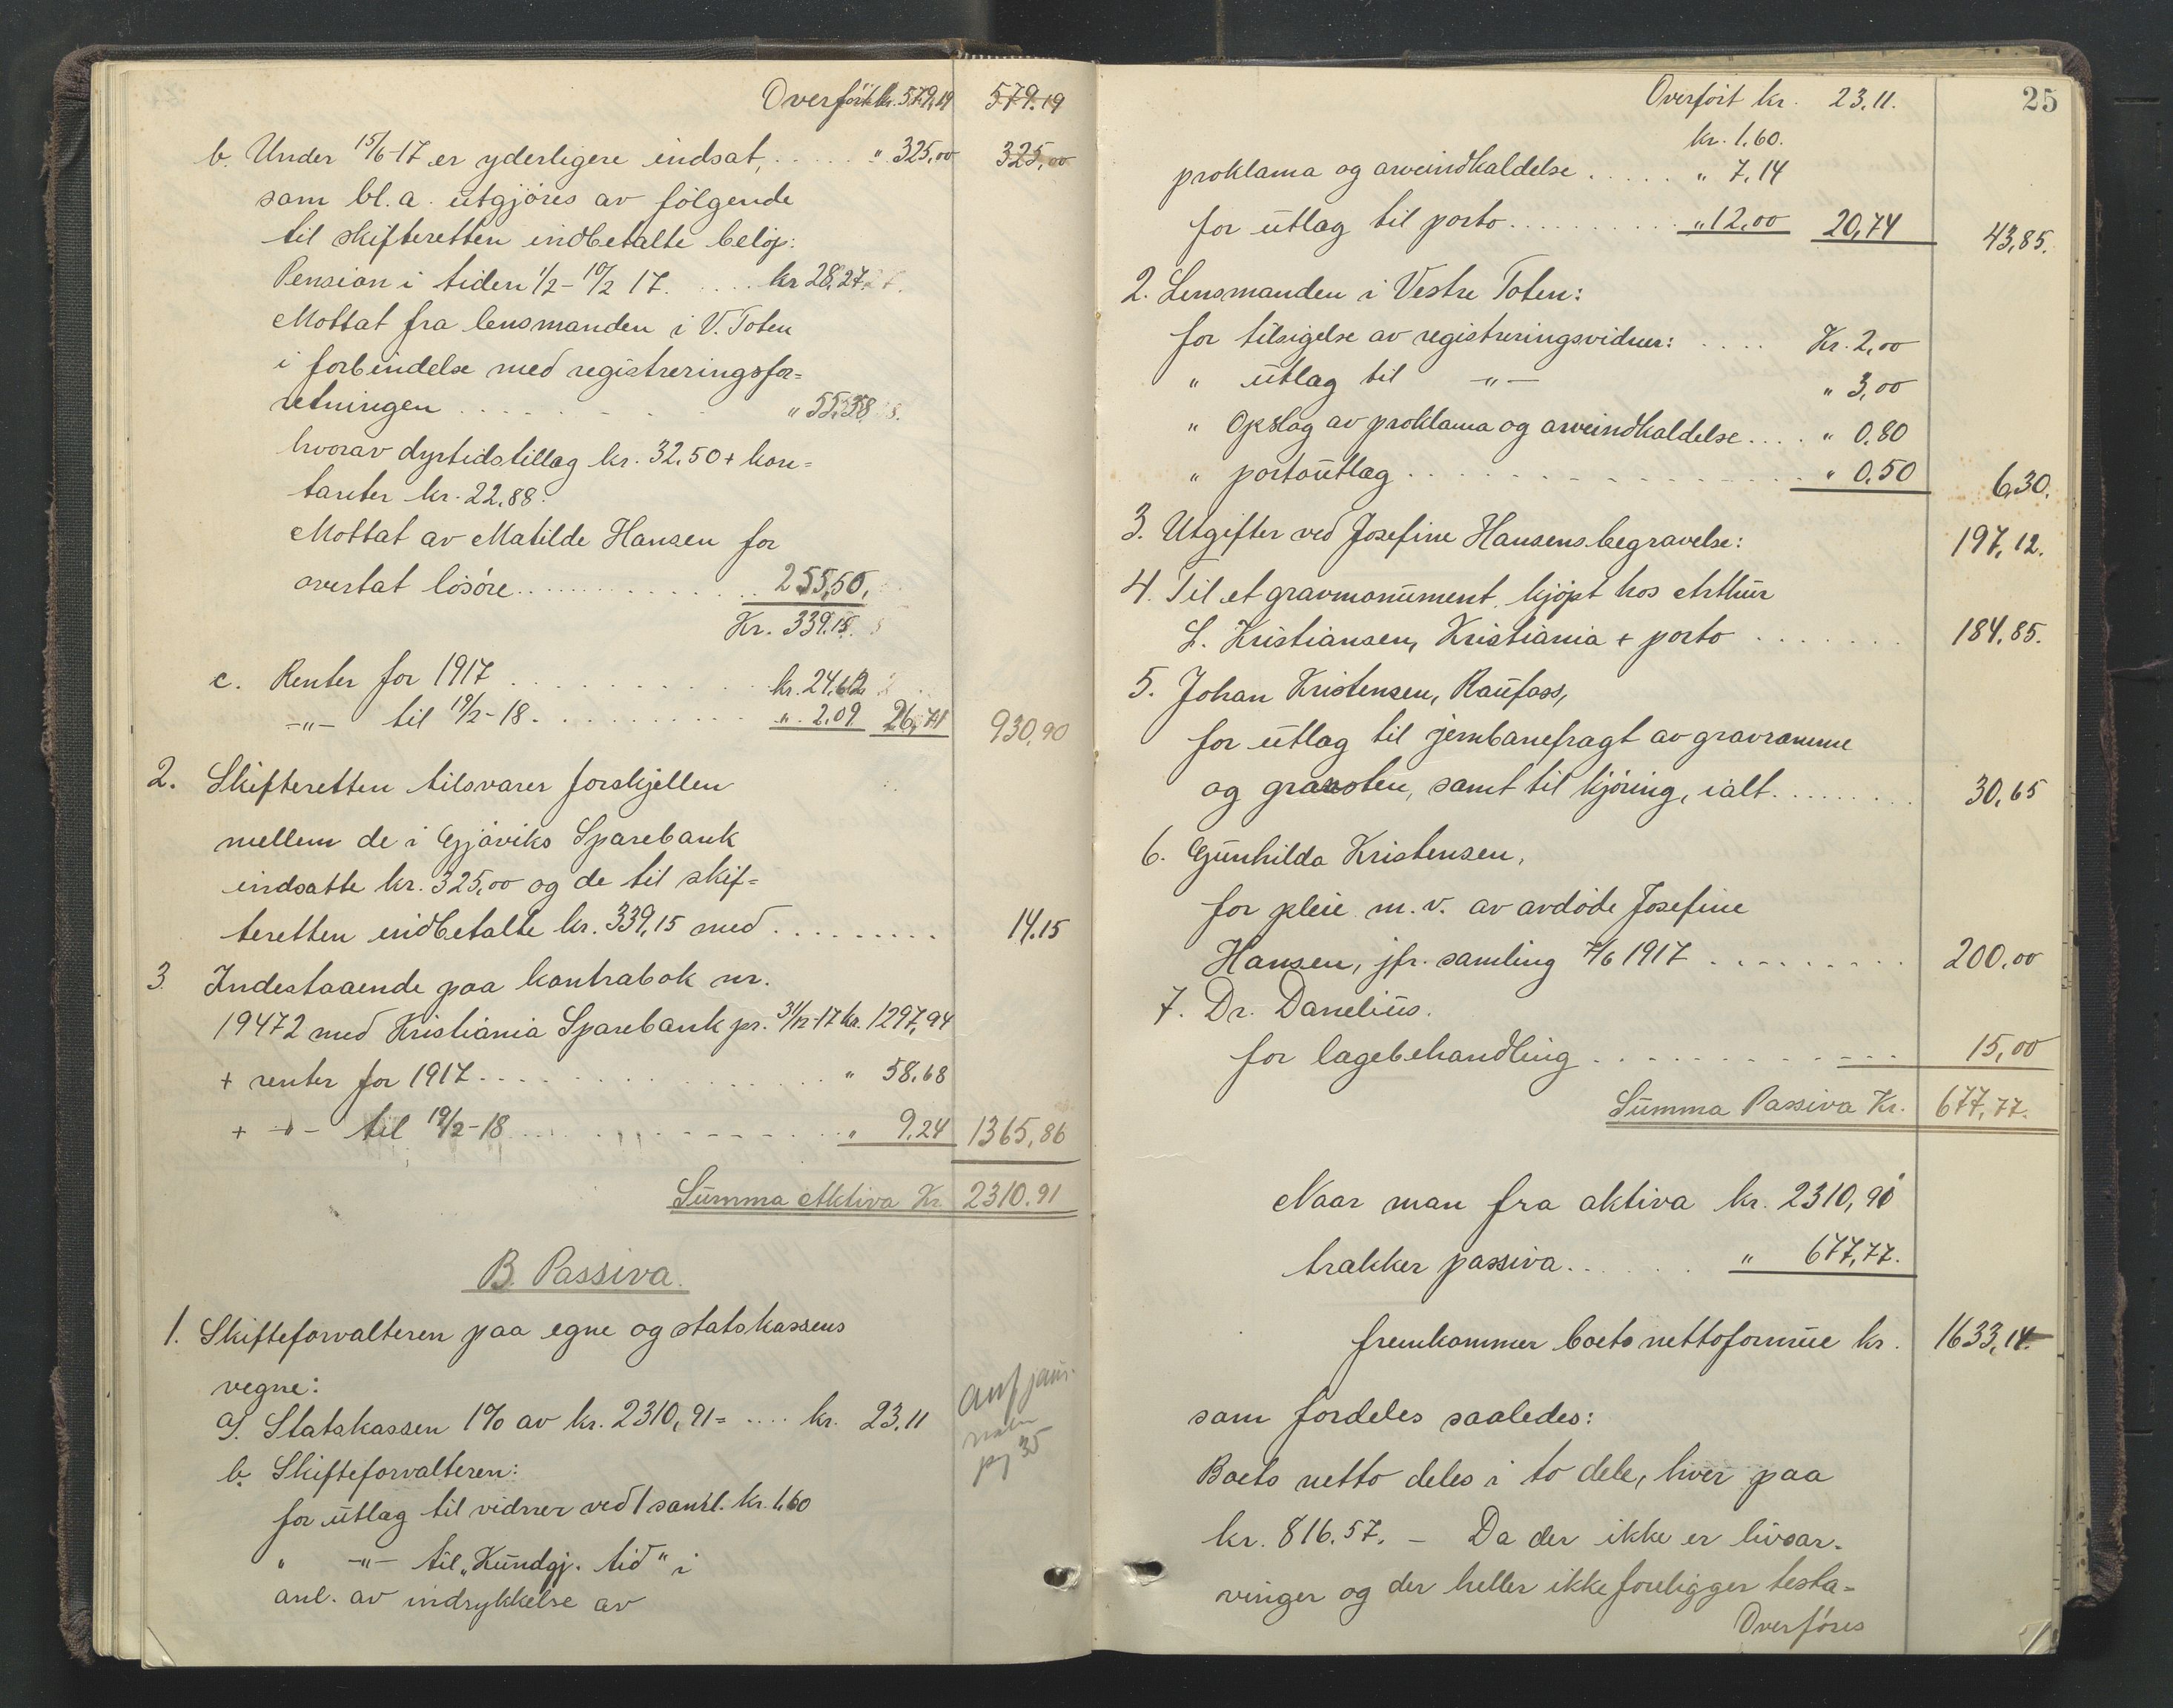 Overført kr. 579,19 579.19
b. Under 15/6-17 er yderligere indsat, ..... " 325,00 325,00
som bl. a. utgjøres av følgende
til skifteretten indbetalte beløp:
Pension i tiden 1/2 - 10/2 17. .... kr 28,27.
Mottat fra lensmanden i V. Toten
i forbindelse med registreringsfor=
retningen ...... " 55,38
hvorav dyrtidstillæg kr. 32.50 + kon=
tanter kr. 22.88.
Mottat av Matilde Hansen for
overtat løsøre............ 255,50,
Kr. 339.15.
c. Renter for 1917 .......... kr. 24,62
-"- til 19/2-18. ......... ". 2.09 26,71 930,90
2. Skifteretten tilsvarer forskjellen
mellem de i Gjøviks Sparebank
indsatte kr. 325,00 og de til skif=
teretten indbetalte kr. 339,15 med ......... 14.15
3. Indestaaende paa kontrabok nr.
19472 med Kristiania Sparebank pr. 31/12-17 kr. 1297,94
+ renter for 1917................ " 58.68
+ -"- til 19/2-18............... " 9.24 1365,86
Summa Aktiva Kr. 2310.91
B. Passiva.
1. Skifteforvalteren paa egne og statskassens
vegne:
a). Statskassen 1% av kr. 2310,91= .... kr. 23.11
b. Skifteforvalteren:
for utlæg til vidner ved 1 saml. kr. 1,60
" -"- til "Kundgj. tid" i
anl. av indrykkelse av
pg 35
25
Overført kr. 23.11.
kr. 1.60.
proklama og arveindkaldelse ..... " 7.14
for utlæg til porto.......... " 12,00 20,74 43,85.
2. Lensmanden i Vestre Toten:
for tilsigelse av registreringsvidner: .... Kr. 2,00
" utlæg til -"- " 3,00
" Opslag av proklama og arveindkaldelse.... " 0.80
" portoutlæg ............... " 0.50 6,30.
3. Utgifter ved Josefine Hansens begravelse: 197,12.
4. Til et gravmonument, kjøpt hos Arthur
L. Kristiansen, Kristiania + porto ...... 184,85.
5. Johan Kristensen, Raufoss,
for utlæg til jernbanefragt av gravramme
og gravsten, samt til kjøring, ialt......... 30,65
6. Gunhilda Kristensen,
for pleie m. v. av avdøde Josefine
Hansen, jfr. samling 7/6 1917 ......... 200,00
7. Dr. Danelius.
for lægebehandling ............. 15,00
Summa Passiva Kr. 677,77.
Naar man fra aktiva kr. 2310,91
trækker passiva....... " 677,77.
fremkommer boets nettoformue kr. 1633,14
som fordeles saaledes:
Boets netto deles i to dele, hver paa
kr. 816.57. - Da der ikke er livsar-
vinger og der heller ikke foreligger testa-
Overføres